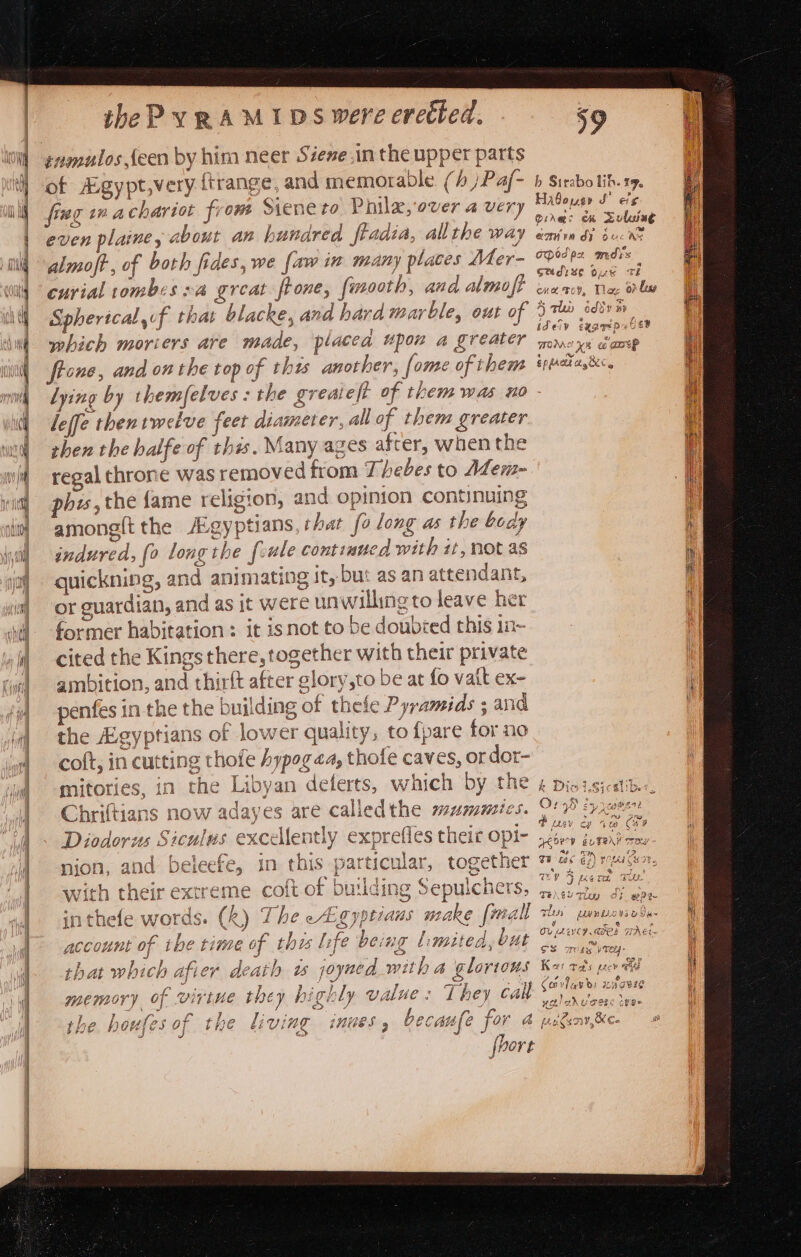 the PYRAMIDS were erected. 59
tumulos, ſeen by him neer Siene in the upper parts
of Ægypt, very ſtrange, and memorable (h) Paſ-
ſing in a chariot from Siene to Philæ, over a very
even plaine, about an hundred ſtadia, all the way
almoſt, of both ſides, we ſaw in many places Mer-
curial tombes : a great ſtone, ſmooth, and almoſt
Spherical, of that blacke, and hard marble, out of
which morters are made, placed upon a greater
ſtone, and on the top of this another, ſome of them
lying by themſelves : the greateſt of them was no
leſſe then twelve feet diameter, all of them greater
then the halfe of this. Many ages after, when the
regal throne was removed from Thebes to Mem-
phis, the ſame religion, and opinion continuing
amongſt the Ægyptians, that ſo long as the body
indured, ſo long the ſoule continued with it, not as
quickning, and animating it, but as an attendant,
or guardian, and as it were unwilling to leave her
former habitation : it is not to be doubted this in-
cited the Kings there, together with their private
ambition, and thirſt after glory, to be at ſo vaſt ex-
penſes in the the building of theſe Pyramids ; and
the Ægyptians of lower quality, to ſpare for no
coſt, in cutting thoſe hypogæa, thoſe caves, or dor-
mitories, in the Libyan deſerts, which by the
Chriſtians now adayes are called the mummies.
Diodorus Siculus excellently expreſſes their opi-
nion, and beleefe, in this particular, together
with their extreme coſt of building Sepulchers,
in theſe words. (k) The Ægyptians make ſmall
account of the time of this life being limited, but
that which after death is joyned with a glorious
memory of virtue they highly value : They call
the houſes of the living innes, becauſe for a
ſhort
h Strabo lib. 17.
k Diod. Sic. lib.